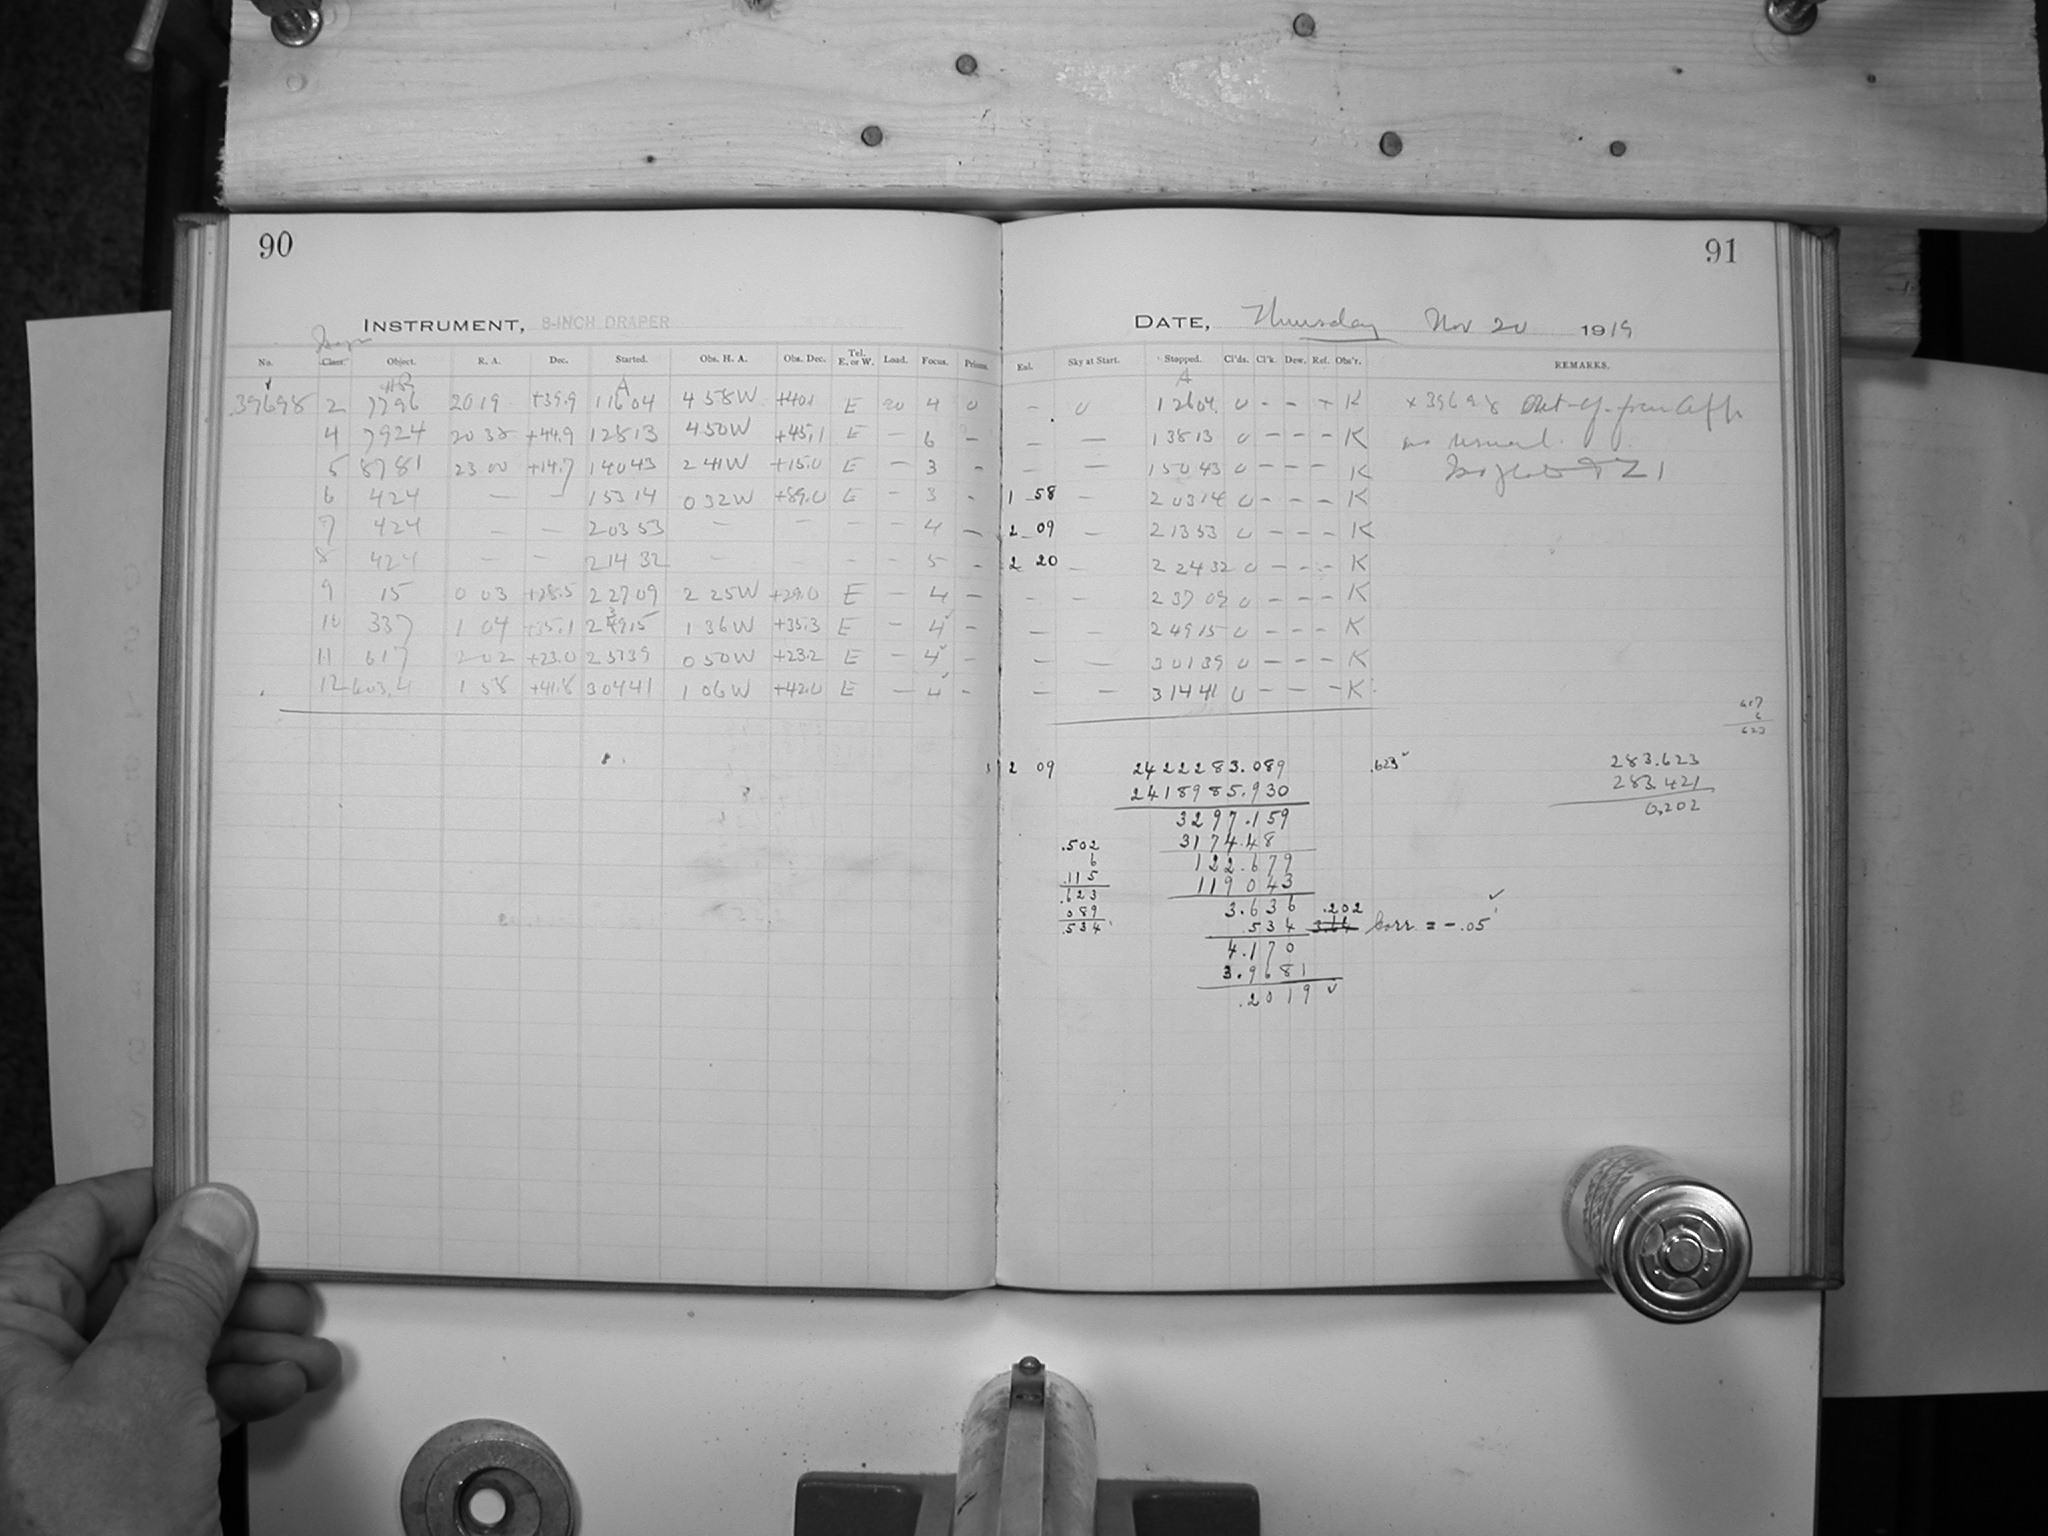 90
INSTRUMENT, 8-INCH DRAPER
No. Class. Object. R. A. Dec. Started. Obs. H. A. Obs. Dec. Tel. E. or W. Load. Focus. Prisms.
HR A
39698 2 7796 20 19 +39.9 1 16 04 4 58 W +40.1 E 20 4 0
4 7924 20 38 +44.9 1 28 13 4 50 W +45.1 E — 6 –
5 8781 23 00 +14.7 1 40 43 2 41 W +15.0 E — 3 –
6 424 — — 1 53 14 0 32 W +89.0 E – 3 –
7 424 — — 2 03 53 – – – – 4 –
8 424 — — 2 14 32 – – – – 5 –
9 15 0 03 +28.5 2 27 09 2 25 W +29.0 E – 4 –
10 337 1 04 +35.1 2 3915 1 36 W +35.3 E – 4 –
11 617 2 02 +23.0 2 51 39 0 50 W +23.2 E – 4 –
12 603,4 1 58 +41.8 3 04 41 1 06 W +42.0 E – 4 –
91
DATE, Thursday Nov 20 1919
Exl. Sky at Start. Stopped. Cl'ds. Cl'k. Dew. Ref. Obs'r. REMARKS.
A
– 0 1 26 04 0 – – + K × 39698
– — 1 38 13 0 – – – K as usual.
– — 1 50 43 0 – – – K
1 58 – 2 03 14 0 – – – K
2 09 – 2 13 53 0 – – – K
2 20 – 2 24 32 0 – – – K
– – 2 37 09 0 – – – K
– – 2 49 15 0 – – – K
– — 3 01 39 0 – – – K
– — 3 14 41 0 – – – K
617
6
623
2 09 2422283.089 .623
2418985.930
3297.159
3174.48
122.679
119 043
3.636 .202
.534 3.64 Corr. = -.05
4.170
3.9681
.2019
.502
6
.115
.623
089
.534
283.623
283.421
0.202